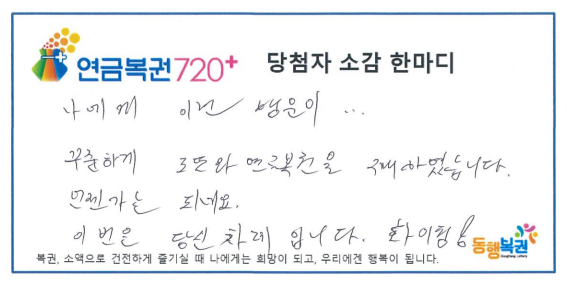 연금복권720+ 당첨자 소감 한마디
나에게 이런 행운이 ...
꾸준하게 로또와 연금복권을 구매하였습니다.
언젠가는 되네요.
이번은 당신 차례 입니다. 화이팅
동행복권
복권, 소액으로 건전하게 즐기실 때 나에게는 희망이 되고, 우리에겐 행복이 됩니다.